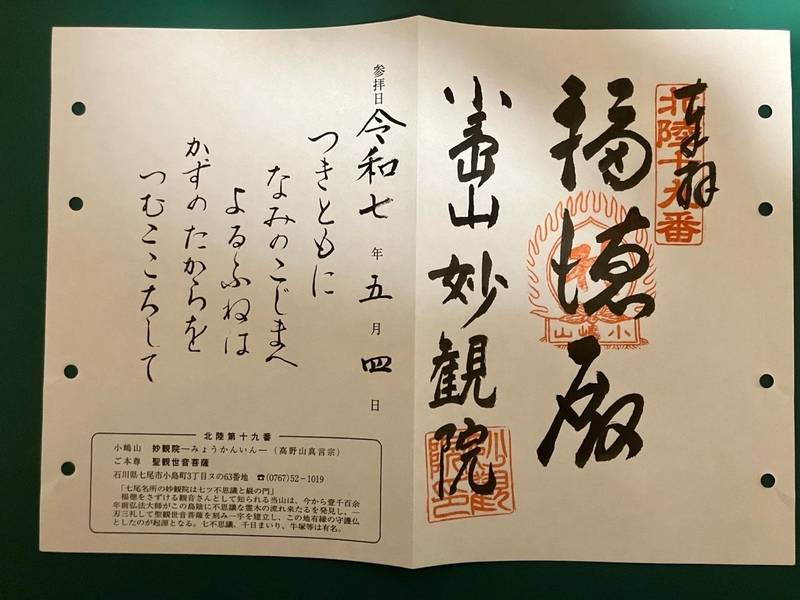 奉拝
北陸十九番
福徳殿
小嶋山
小嶌山 妙観院
参拝日 令和七年五月四日
つきともに
なみのこじまへ
よるふねは
かずのたからを
つむここちして
北陸第十九番
小嶋山 妙観院―みょうかんいん―(高野山真言宗)
ご本尊 聖観世音菩薩
石川県七尾市小島町3丁目ヌの63番地 ☎(0767)52－1019
「七尾名所の妙観院は七ツ不思議と巌の門」
福徳をさずける観音さんとして知られる当山は、今から壹千百余
年前弘法大師がこの島陰に不思議な霊木の流れ来たるを発見し、一
刃三礼して聖観世音菩薩を刻み一宇を建立し、この地有縁の守護仏
としたのが起源となる。七不思議、千日まいり、牛塚等は有名。